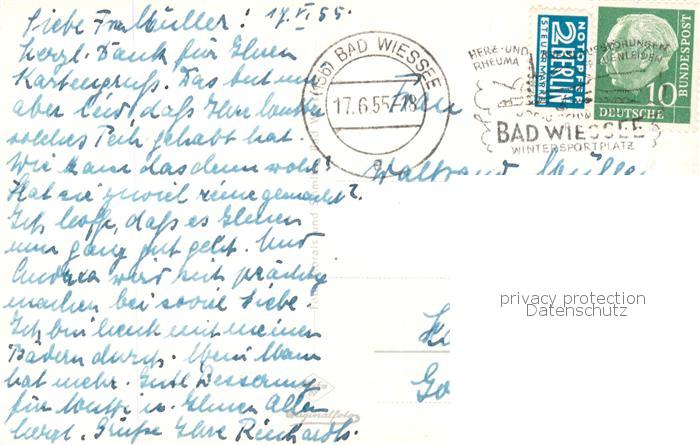 Liebe Fr. Müller! 17.VI.55.
Herzl. Dank für Ihren
Kartengruß. Das tut mir
aber leid, daß Ihre Mutti
solches Pech gehabt hat.
Wie kam das denn wohl?
Hat sie zuviel reine gemacht?
Ich hoffe, daß es Ihnen
nun ganz gut geht. Und
Andrea wird sich prächtig
machen bei soviel Liebe.
Ich bin heute mit meinen
Bädern durch. Mein Mann
hat mehr. Gute Besserung
für Mutti u. Ihnen Allen
herzl. Grüße Ihre Reinhardts.
(13b) BAD WIESSEE
17.6.55
a
HERZ- UND
RHEUMA
BAD WIESSEE
WINTERSPORTPLATZ
NOTOPFER
2 BERLIN
STEUERMARKE
DEUTSCHE
BUNDESPOST
10
Frau
Waltraud Müller
privacy protection
Datenschutz
Originalfoto